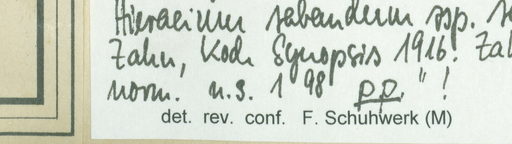 Hieracium sabaudum ssp.
Zahn, Koch Synopsis 1916! Zah
norm. n.s. 198 p.p." !
det. rev. conf. F. Schuhwerk (M)